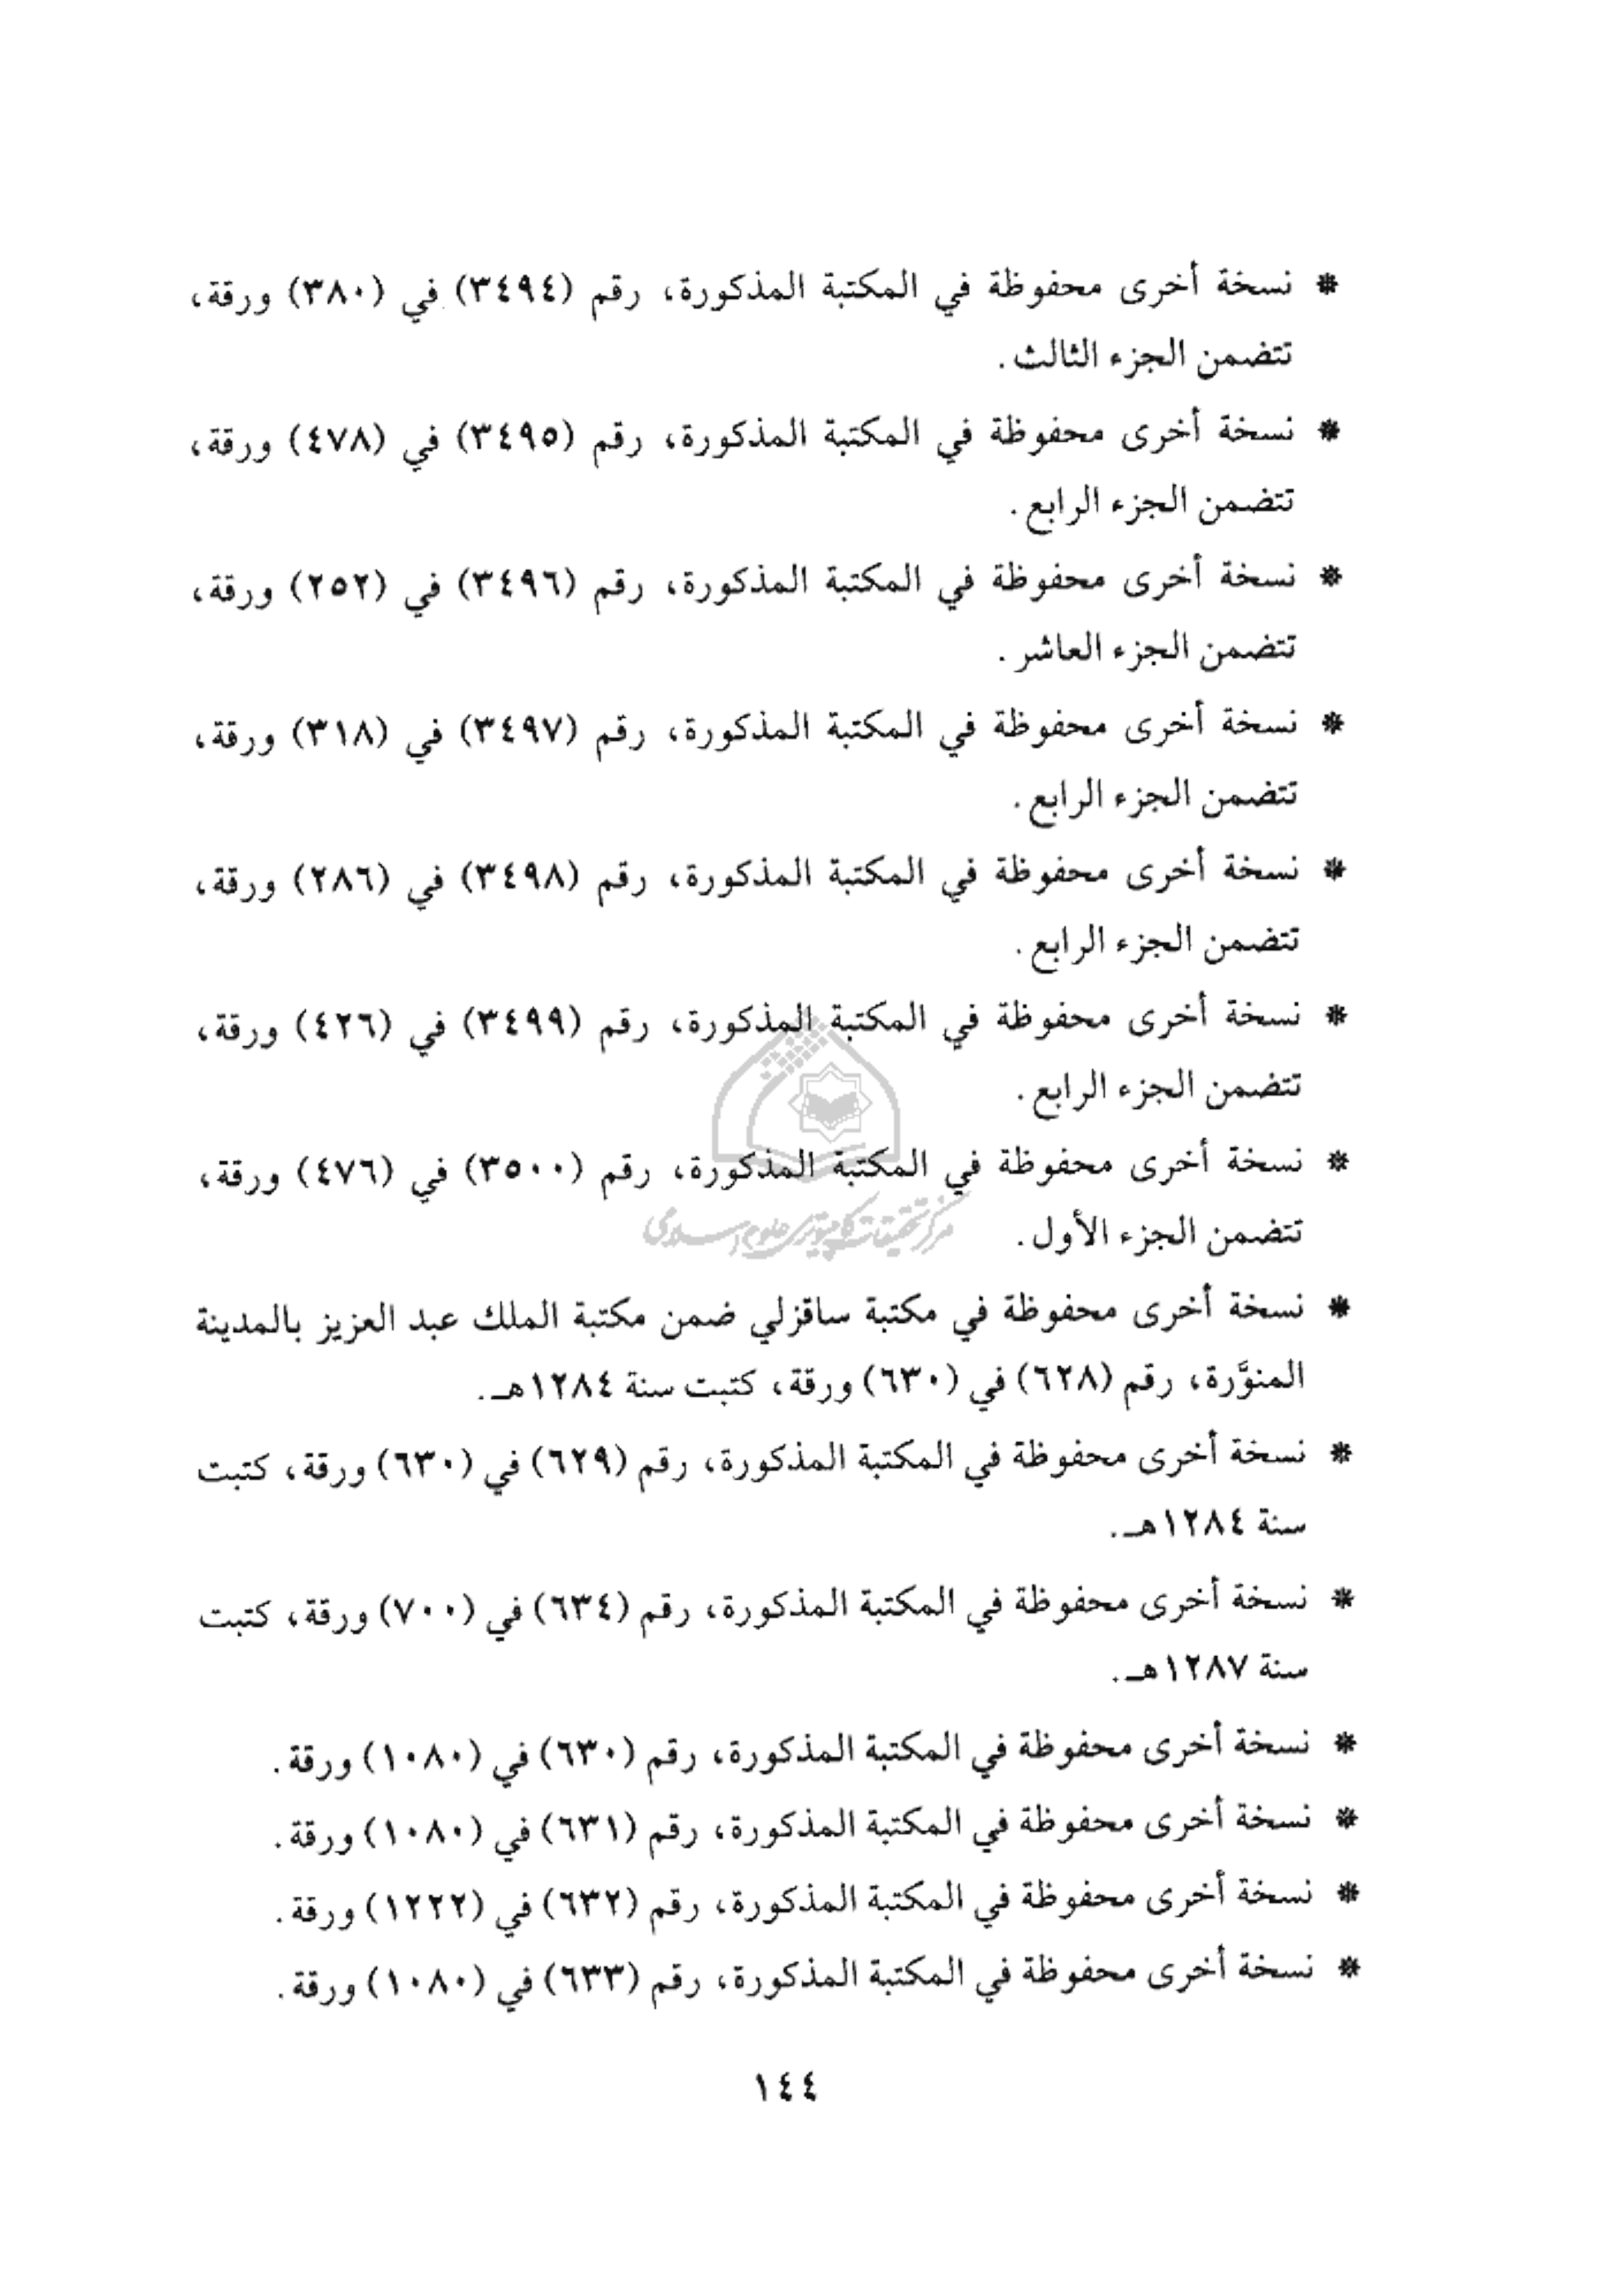 * نسخة أخرى محفوظة في المكتبة المذكورة، رقم (٣٤٩٤) في (٣٨٠) ورقة،
تتضمن الجزء الثالث.
* نسخة أخرى محفوظة في المكتبة المذكورة، رقم (٣٤٩٥) في (٤٧٨) ورقة،
تتضمن الجزء الرابع.
* نسخة أخرى محفوظة في المكتبة المذكورة، رقم (٣٤٩٦) في (٢٥٢) ورقة،
تتضمن الجزء العاشر.
* نسخة أخرى محفوظة في المكتبة المذكورة، رقم (٣٤٩٧) في (٣١٨) ورقة،
تتضمن الجزء الرابع.
* نسخة أخرى محفوظة في المكتبة المذكورة، رقم (٣٤٩٨) في (٢٨٦) ورقة،
تتضمن الجزء الرابع.
* نسخة أخرى محفوظة في المكتبة المذكورة، رقم (٣٤٩٩) في (٤٢٦) ورقة،
تتضمن الجزء الرابع.
* نسخة أخرى محفوظة في المكتبة المذكورة، رقم (٣٥٠٠) في (٤٧٦) ورقة،
تتضمن الجزء الأول.
مركز تحقيقات كامپيوترى علوم اسلامى
* نسخة أخرى محفوظة في مكتبة ساقزلي ضمن مكتبة الملك عبد العزيز بالمدينة
المنوَّرة، رقم (٦٢٨) في (٦٣٠) ورقة، كتبت سنة ١٢٨٤هـ.
* نسخة أخرى محفوظة في المكتبة المذكورة، رقم (٦٢٩) في (٦٣٠) ورقة، كتبت
سنة ١٢٨٤هـ.
* نسخة أخرى محفوظة في المكتبة المذكورة، رقم (٦٣٤) في (٧٠٠) ورقة، كتبت
سنة ١٢٨٧هـ.
* نسخة أخرى محفوظة في المكتبة المذكورة، رقم (٦٣٠) في (١٠٨٠) ورقة.
* نسخة أخرى محفوظة في المكتبة المذكورة، رقم (٦٣١) في (١٠٨٠) ورقة.
* نسخة أخرى محفوظة في المكتبة المذكورة، رقم (٦٣٢) في (١٢٢٢) ورقة.
* نسخة أخرى محفوظة في المكتبة المذكورة، رقم (٦٣٣) في (١٠٨٠) ورقة.
١٤٤